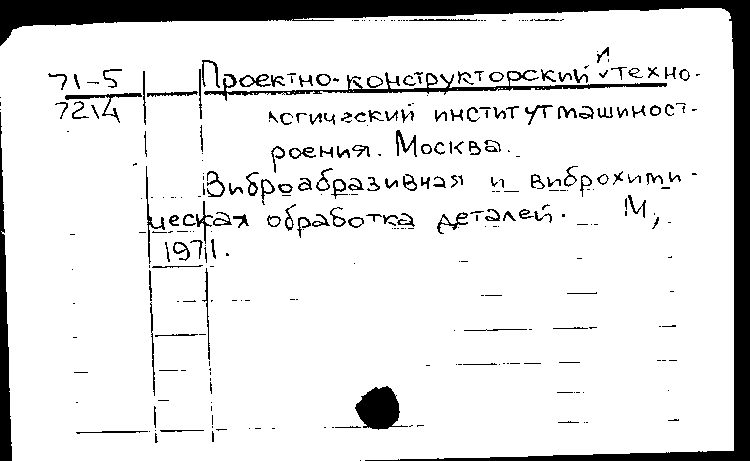 71-5 Проектно-конструкторский и техно-
7214 логический институт машиност-
роения. Москва.
Виброабразивная и виброхими-
ческая обработка деталей. М,
1971.